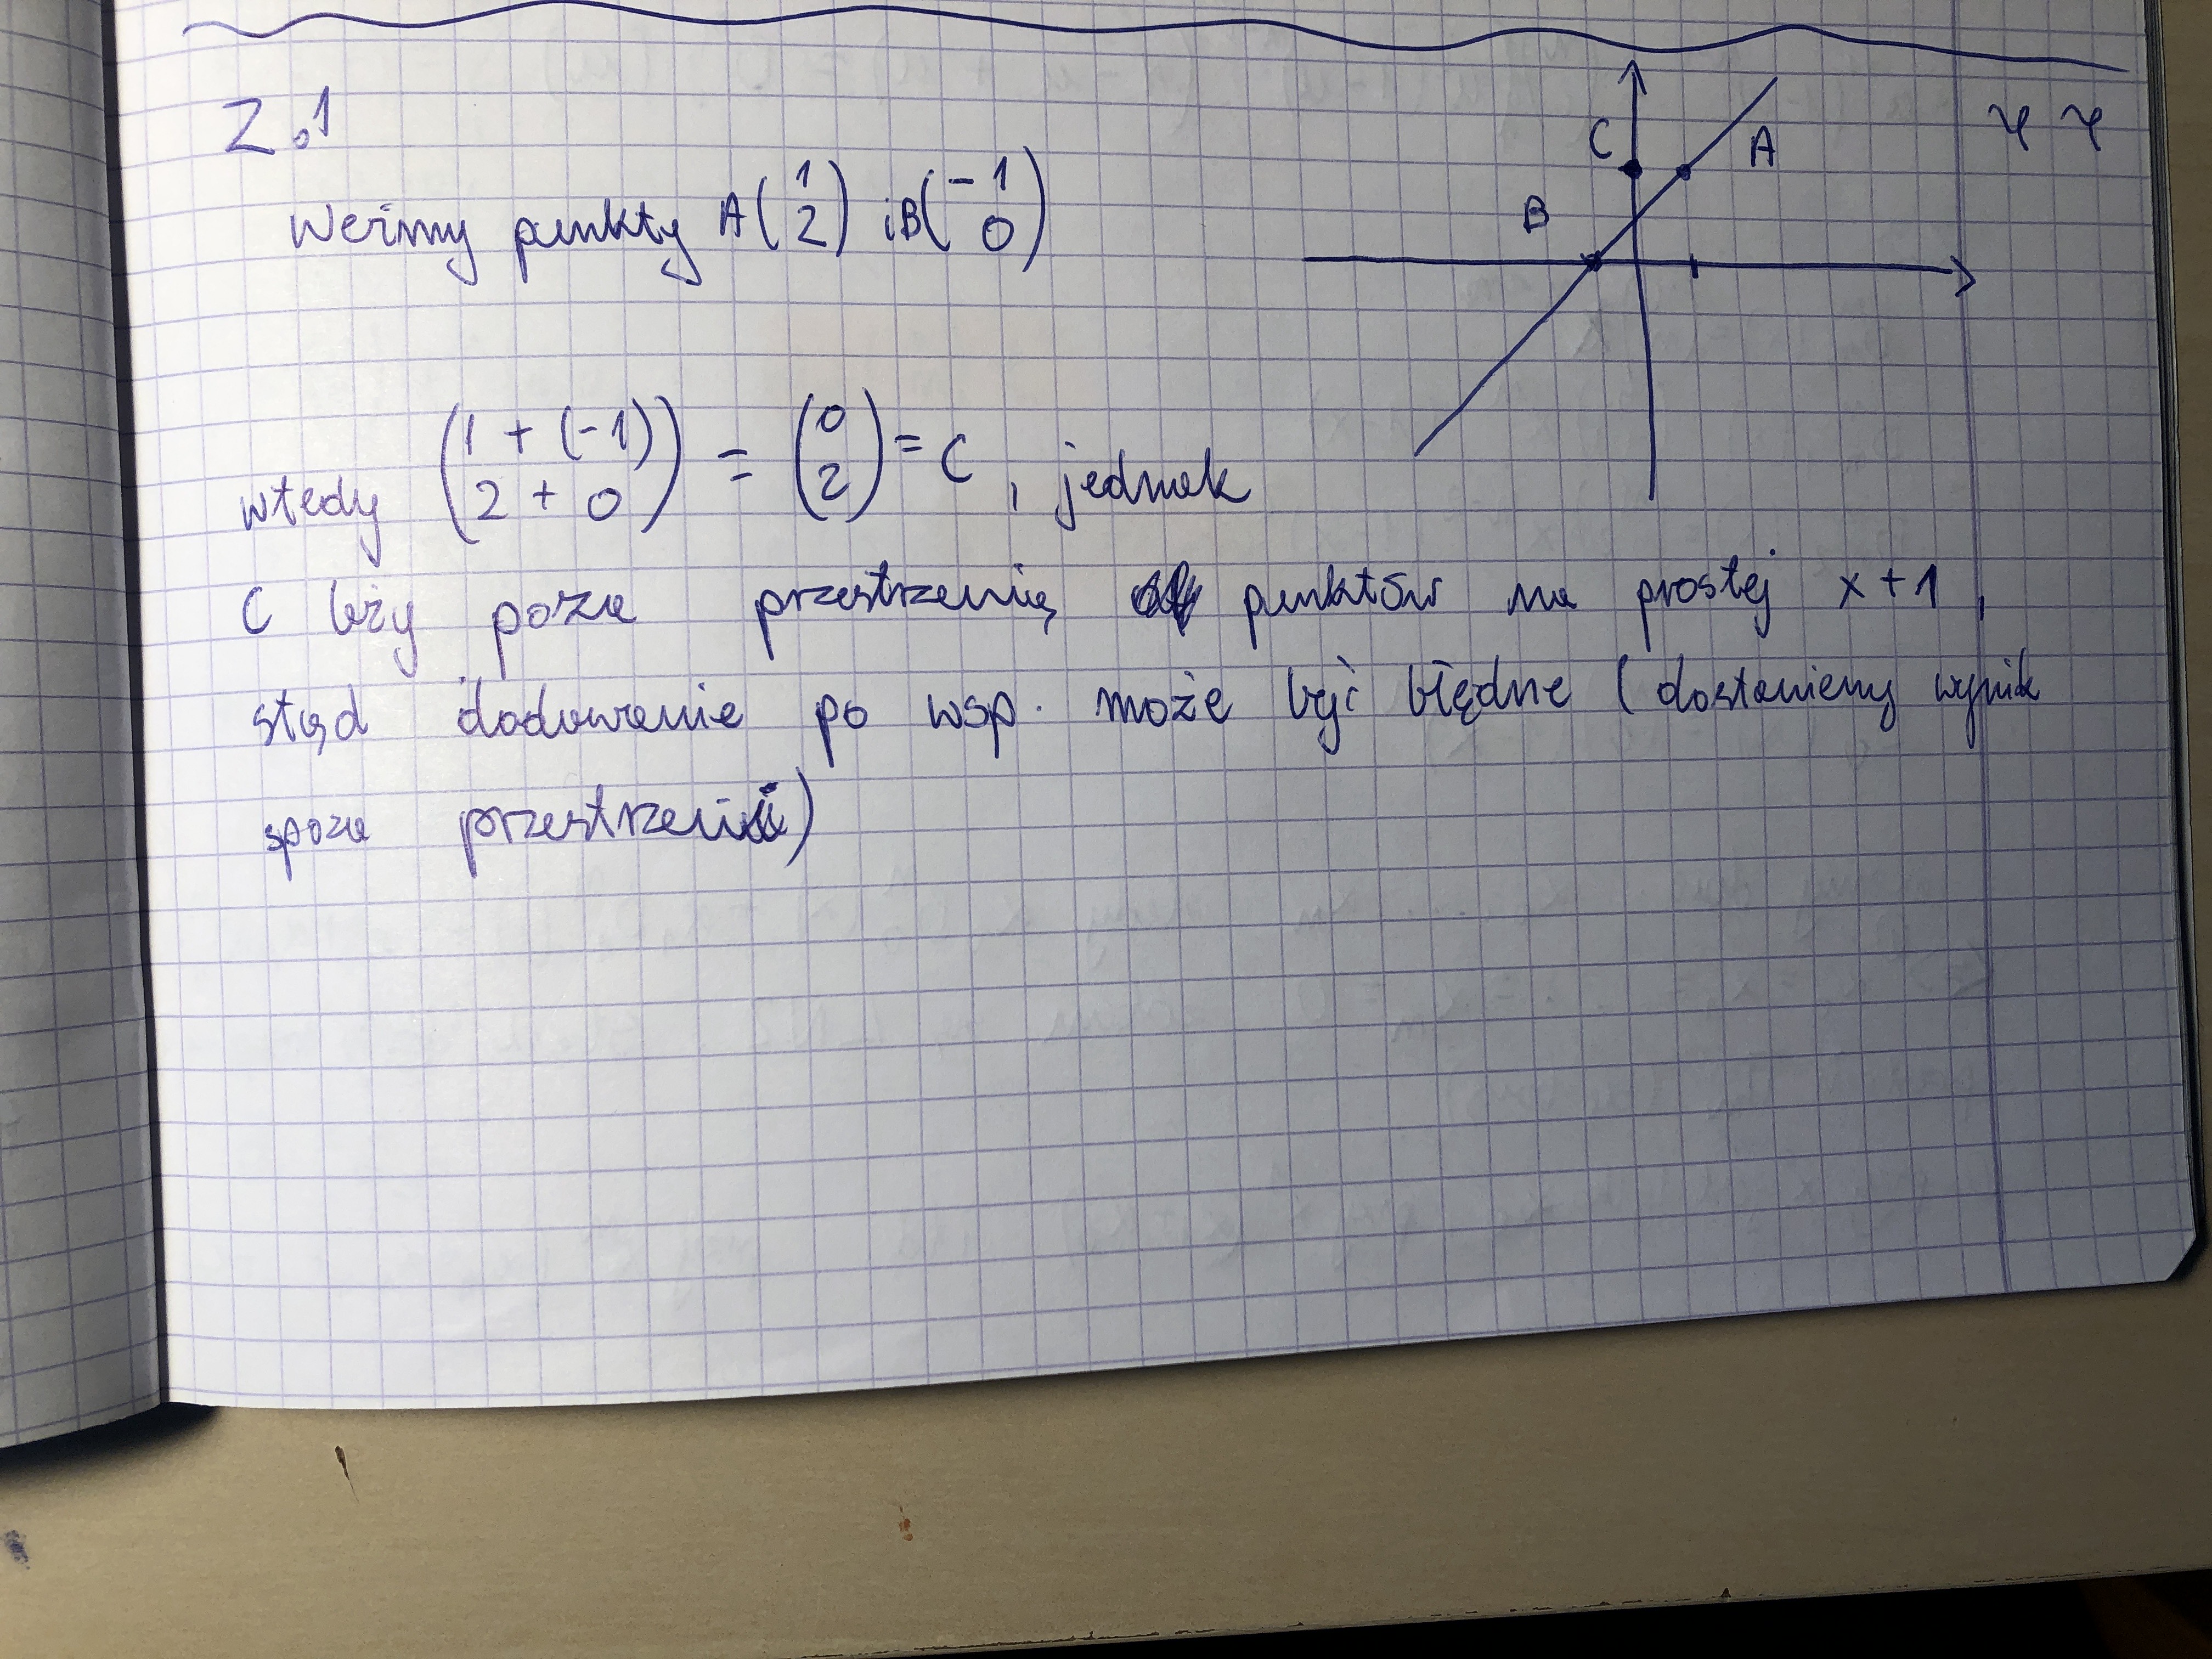 Z.1
C A
B
Weźmy punkty A(1 2) i B(-1 0)
wtedy (1 + (-1) 2 + 0) = (0 2) = C, jednak
C leży poza przestrzenią punktów na prostej x+1,
stąd dodawanie po wsp. może być błędne (dostaniemy wynik
spoza przestrzeni)